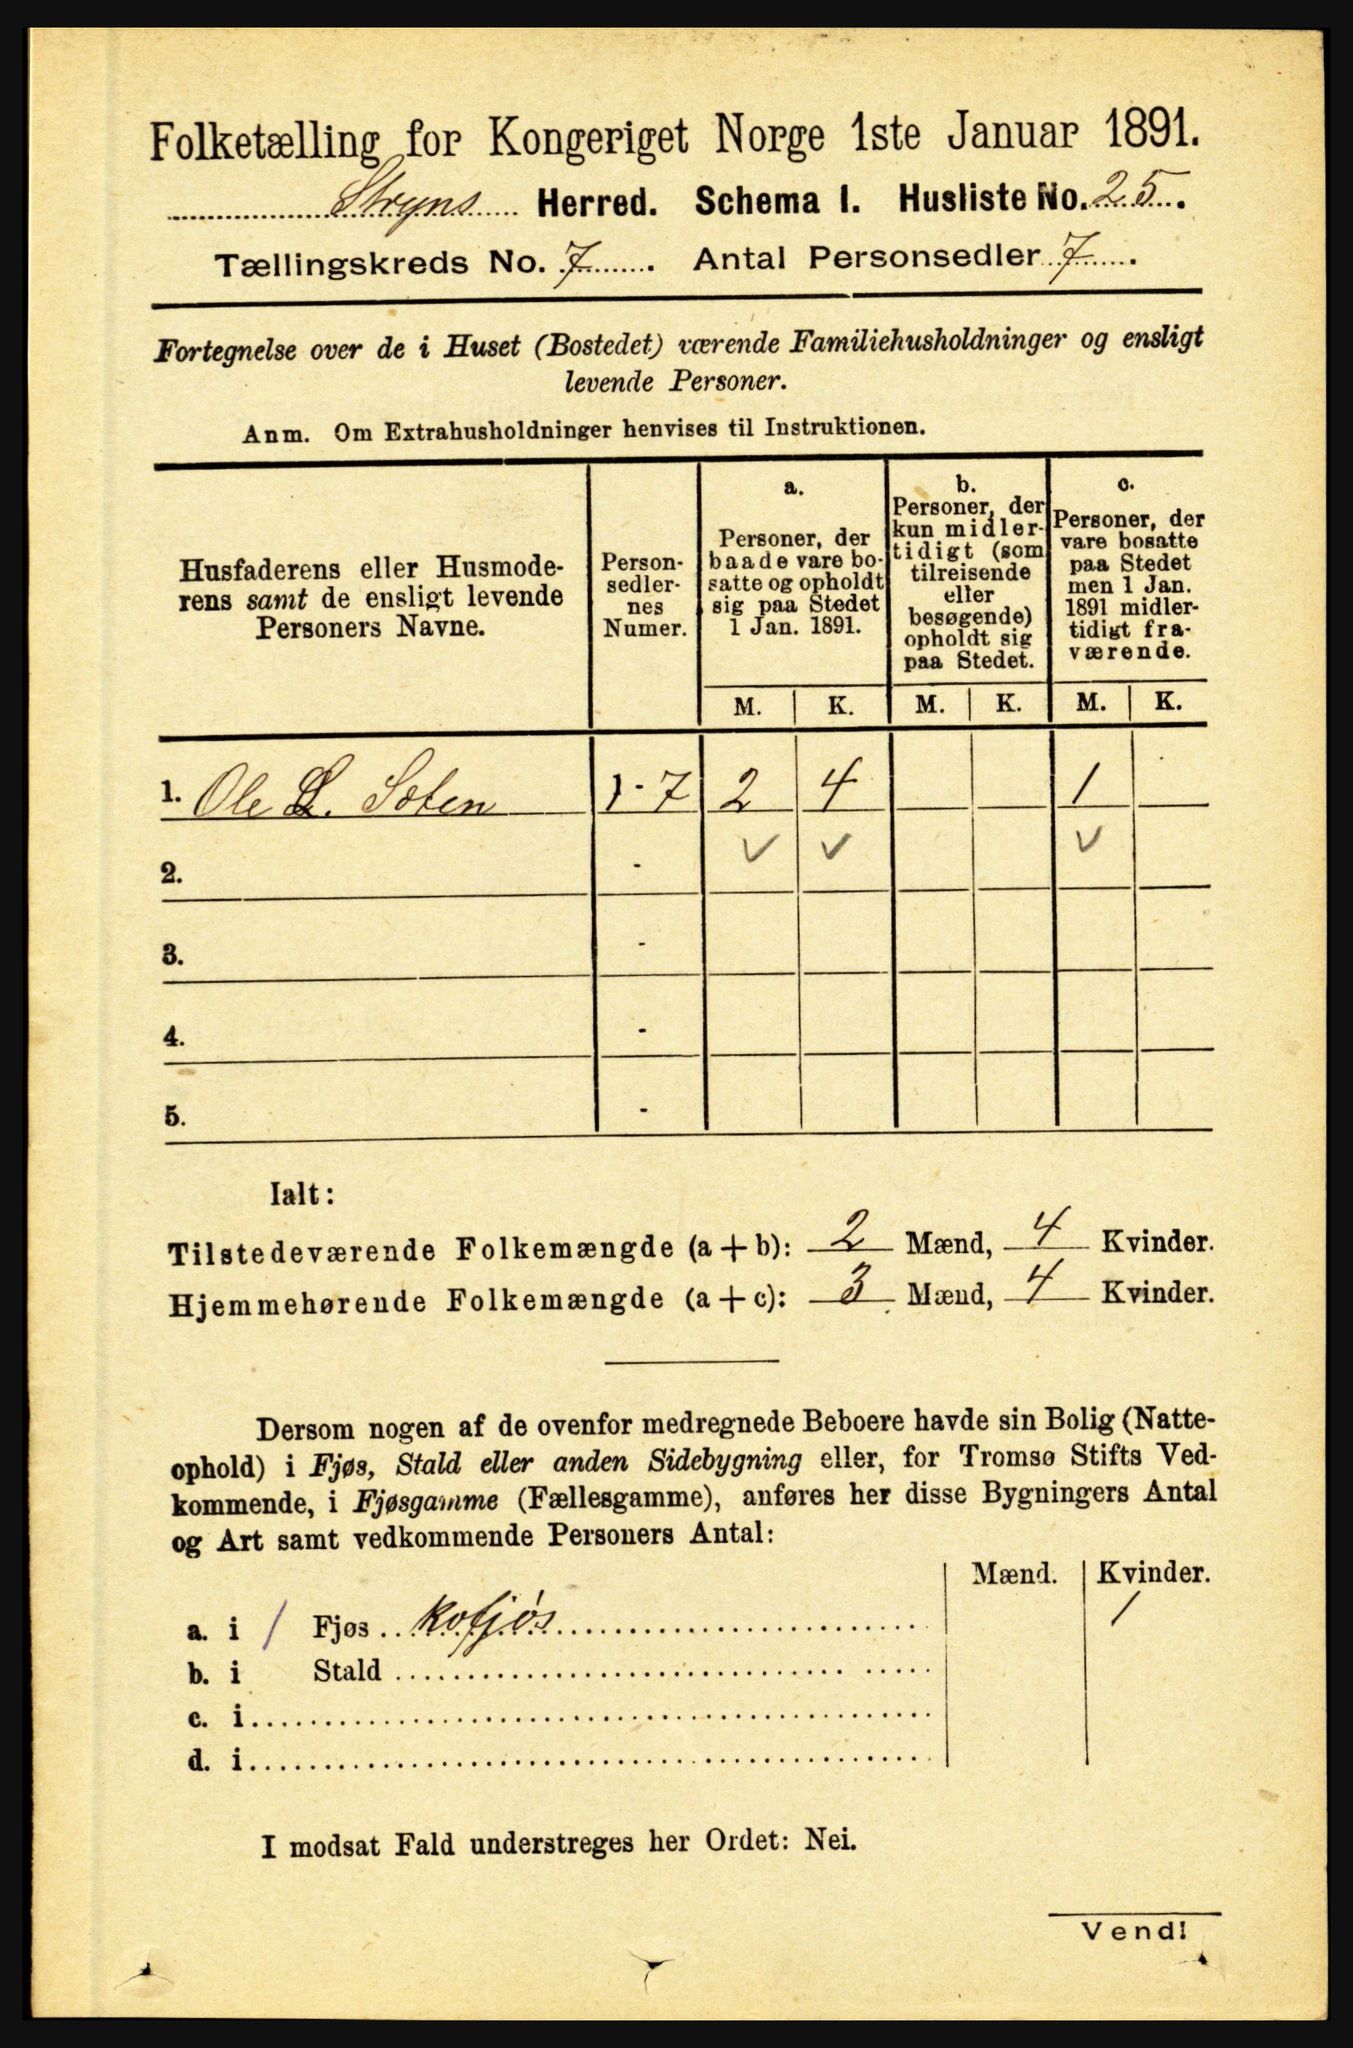 Folketælling for Kongeriget Norge 1ste Januar 1891.
Stryns Herred. Schema I. Husliste No. 25.
Tællingskreds No. 7. Antal Personsedler 7.
Fortegnelse over de i Huset (Bostedet) værende Familiehusholdninger og ensligt
levende Personer.
Anm. Om Extrahusholdninger henvises til Instruktionen.
Husfaderens eller Husmode-
rens samt de ensligt levende
Personers Navne.
Person-
sedler-
nes
Numer.
a.
Personer, der
baade vare bo-
satte og opholdt
sig paa Stedet
1 Jan. 1891.
b.
Personer, der
kun midler-
tidigt (som
tilreisende
eller
besøgende)
opholdt sig
paa Stedet.
c.
Personer, der
vare bosatte
paa Stedet
men 1 Jan.
1891 midler-
tidigt fra-
værende.
M. K. M. K. M. K.
1. Ole L. Soten 1-7 2 4 1
2. - ✓ ✓ ✓
3. -
4. -
5. -
Ialt:
Tilstedeværende Folkemængde (a + b): 2 Mænd, 4 Kvinder.
Hjemmehørende Folkemængde (a + c): 3 Mænd, 4 Kvinder.
Dersom nogen af de ovenfor medregnede Beboere havde sin Bolig (Natte-
ophold) i Fjøs, Stald eller anden Sidebygning eller, for Tromsø Stifts Ved-
kommende, i Fjøsgamme (Fællesgamme), anføres her disse Bygningers Antal
og Art samt vedkommende Personers Antal:
Mænd. Kvinder.
a. i 1 Fjøs Kofjøs 1
b. i Stald
c. i
d. i
I modsat Fald understreges her Ordet: Nei.
Vend!